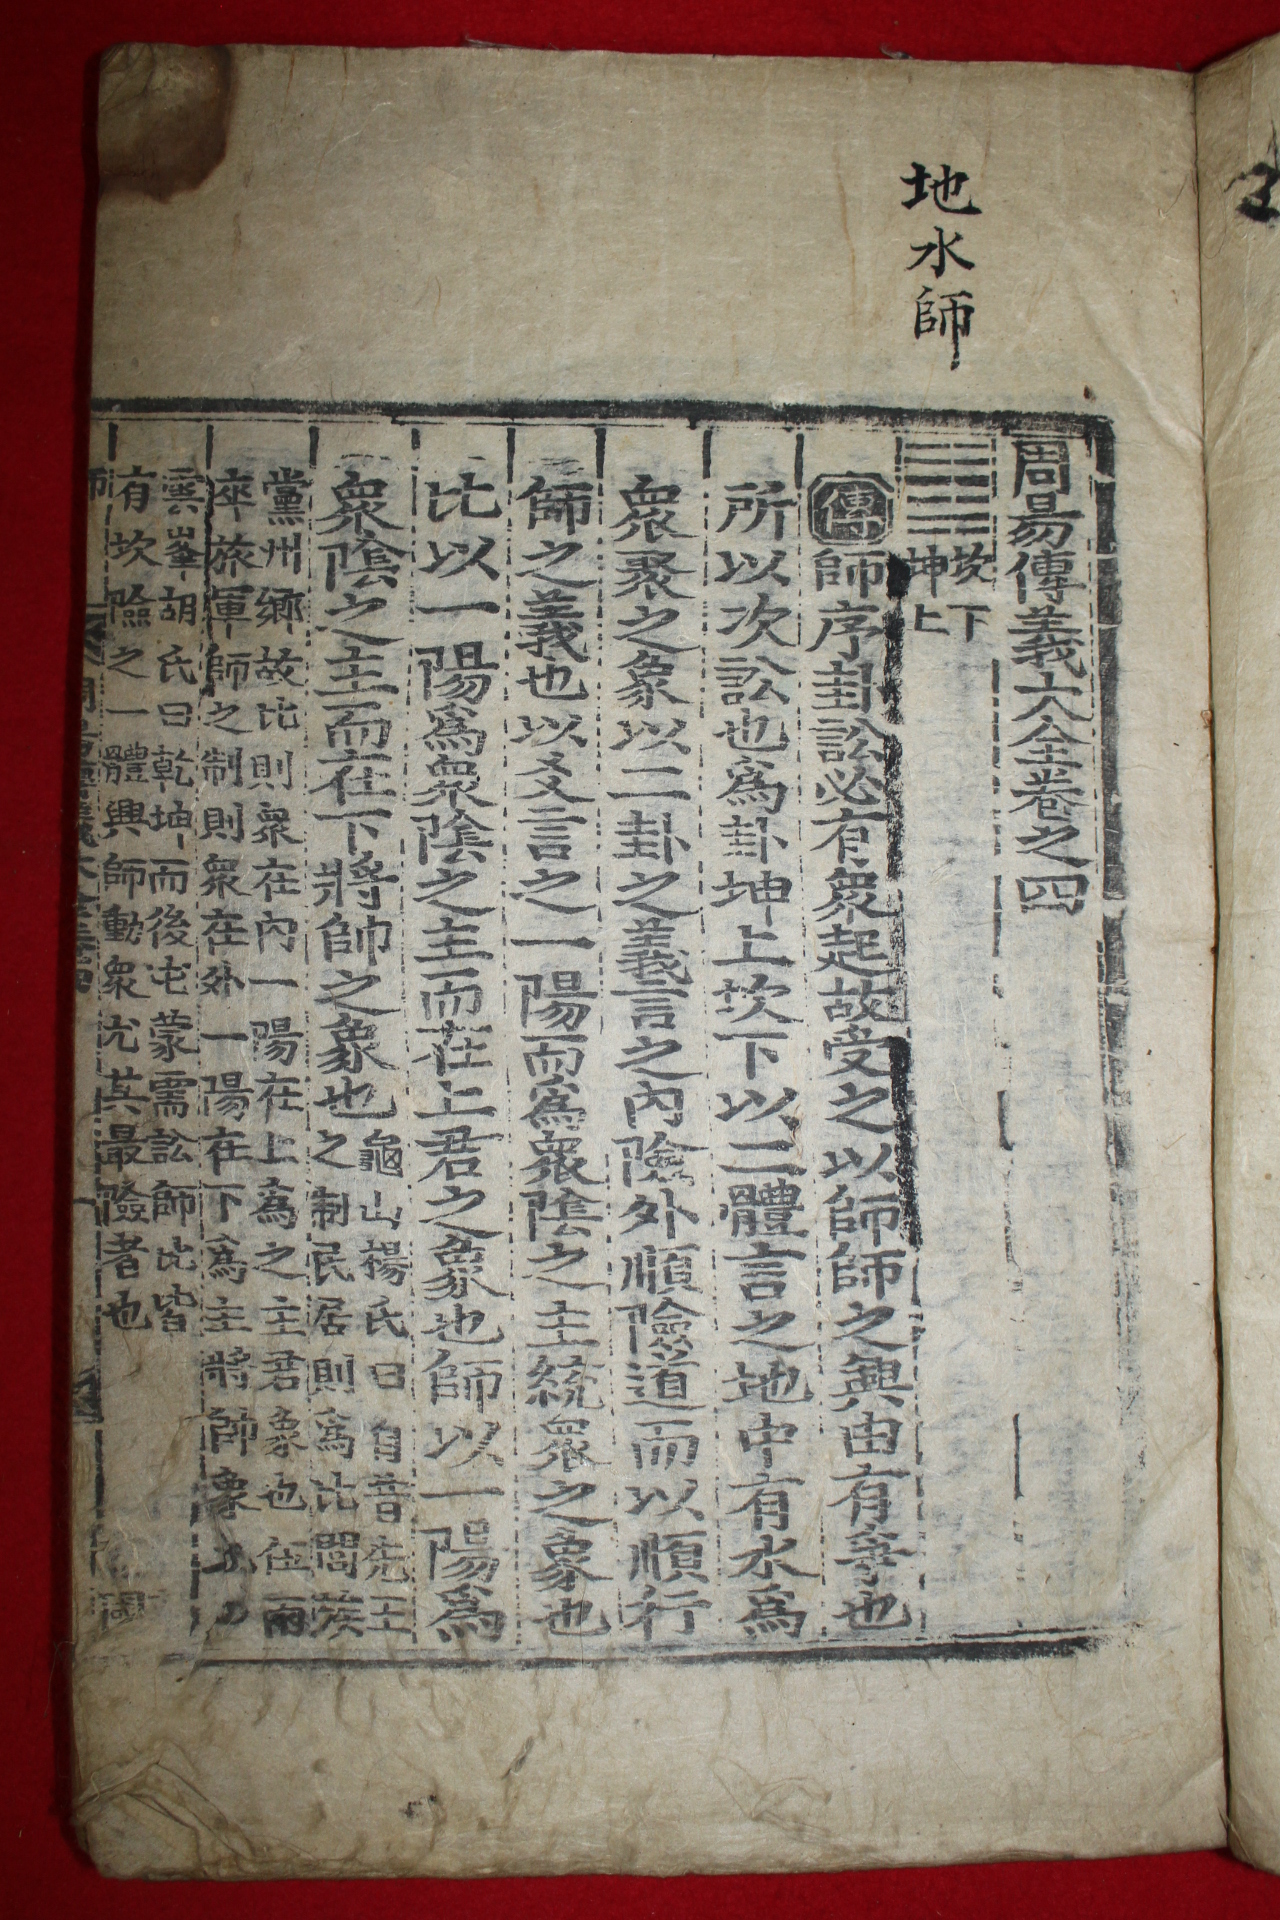 地水師
周易傳義大全卷之四
坎下
坤上
傳師序卦訟必有衆起故受之以師師之興由有爭也
所以次訟也爲卦坤上坎下以二體言之地中有水爲
衆聚之象以二卦之義言之內險外順險道而以順行
師之義也以爻言之一陽而爲衆陰之主統衆之象也
比以一陽爲衆陰之主而在上君之象也師以一陽爲
衆陰之主而在下將帥之象也
龜山楊氏曰自昔先王
之制民居則爲比閭族
黨州鄕故比則衆在內一陽在上爲之主君象也伍兩
卒旅軍師之制則衆在外一陽在下爲主將帥象
雲峯胡氏曰乾坤而後屯蒙需訟師比皆
有坎險之一體興師動衆尤其最險者也